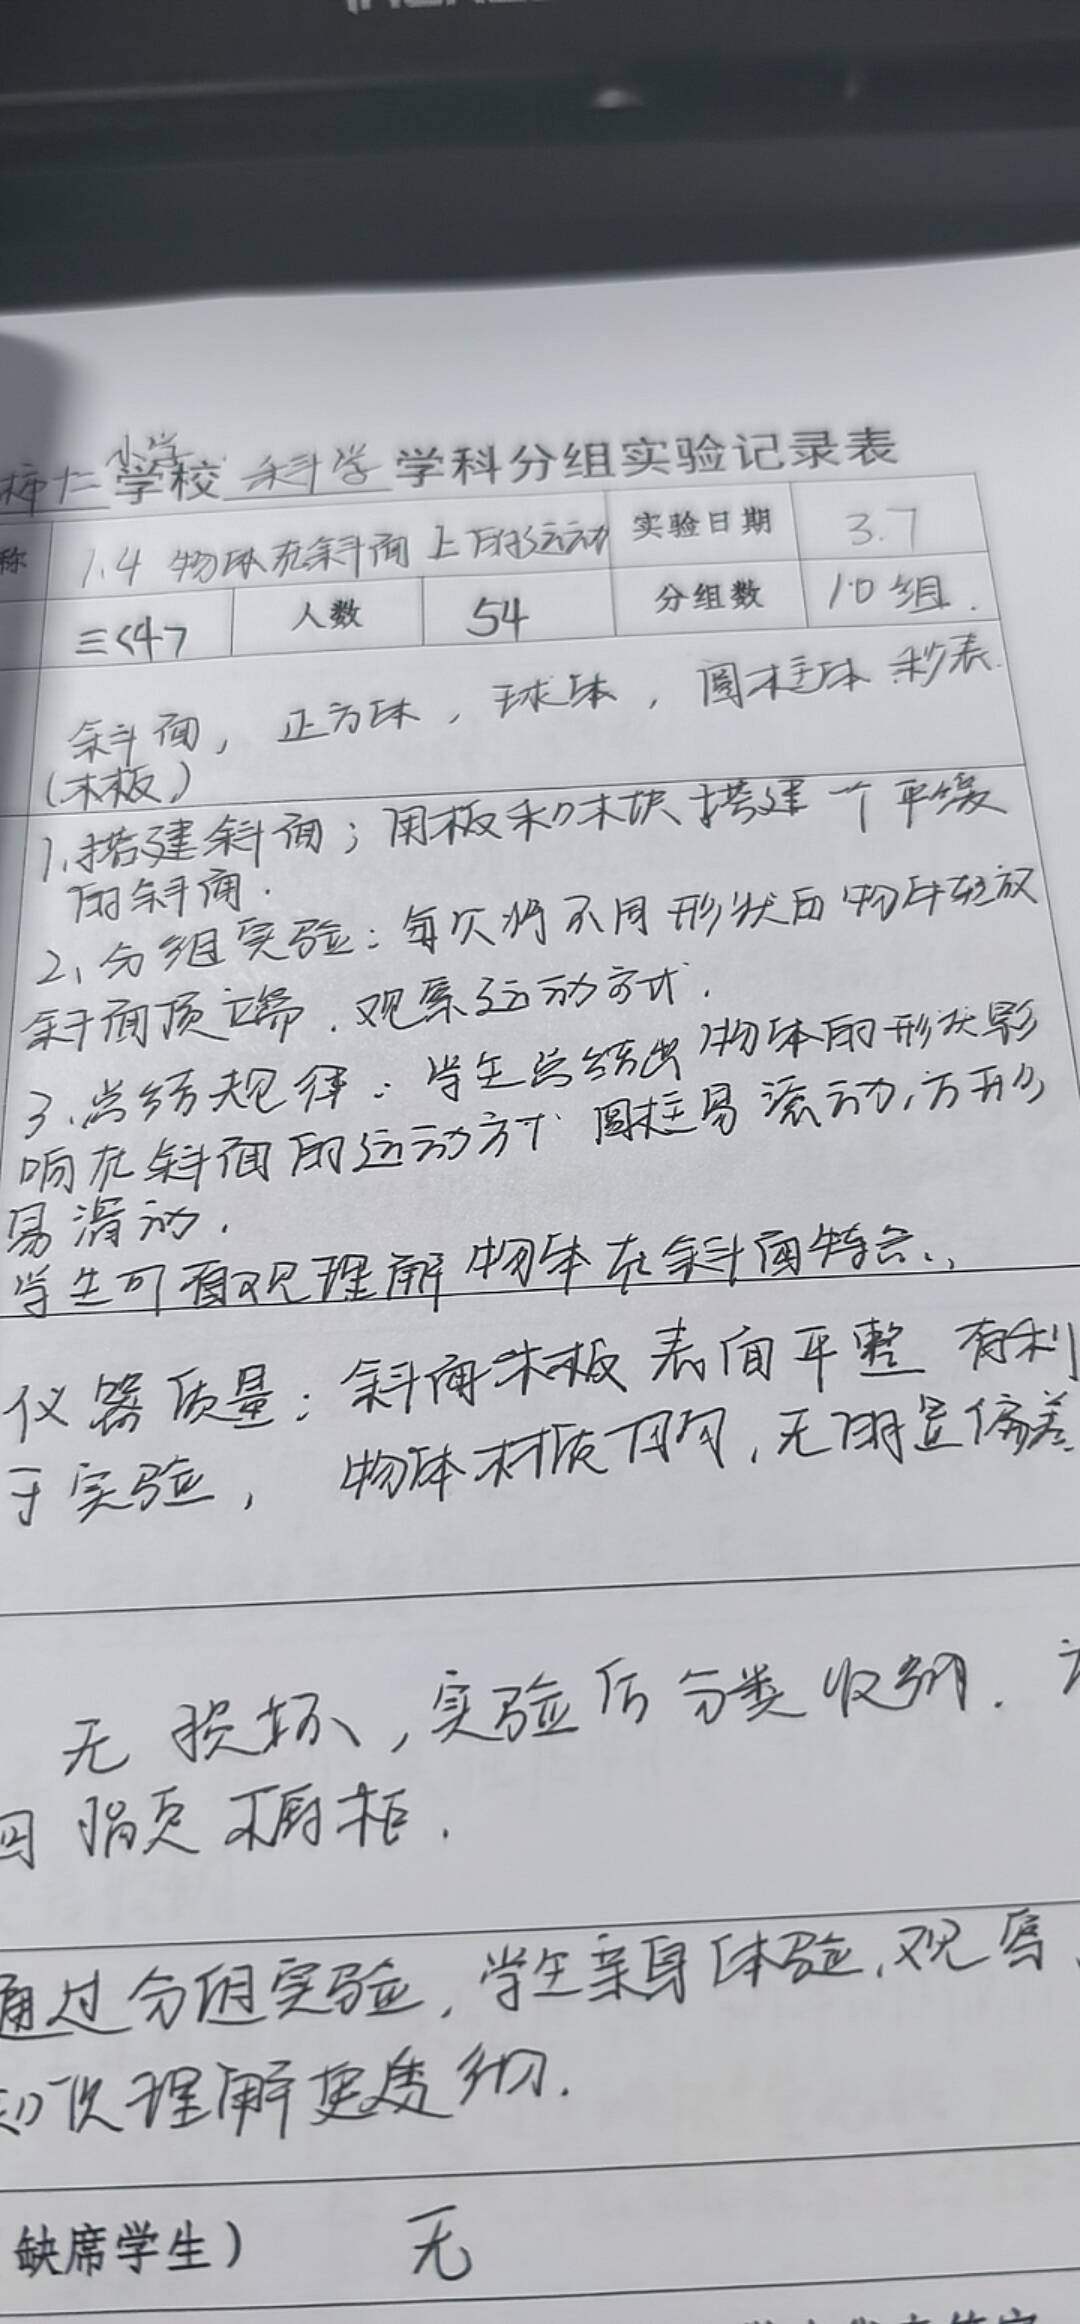 小学
学校 科学 学科分组实验记录表
称 1.4 物体在斜面上的运动 实验日期 3.7
三<4> 人数 54 分组数 10组.
斜面, 正方体, 球体, 圆柱体 秒表.
(木板)
1.搭建斜面;用板和木块搭建一个平缓
的斜面.
2、分组实验:每次将不同形状的物体轻放
斜面顶端.观察运动方式.
3.总结规律:学生总结出物体的形状影
响在斜面的运动方式 圆柱易滚动,方形
易滑动.
学生可直观理解物体在斜面特点.
仪器质量:斜面木板表面平整 有利
于实验, 物体材质均匀,无明显偏差.
无损坏,实验后分类收纳.
回 橱柜.
通过分组实验,学生亲身体验,观察、
理解更透彻.
缺席学生) 无